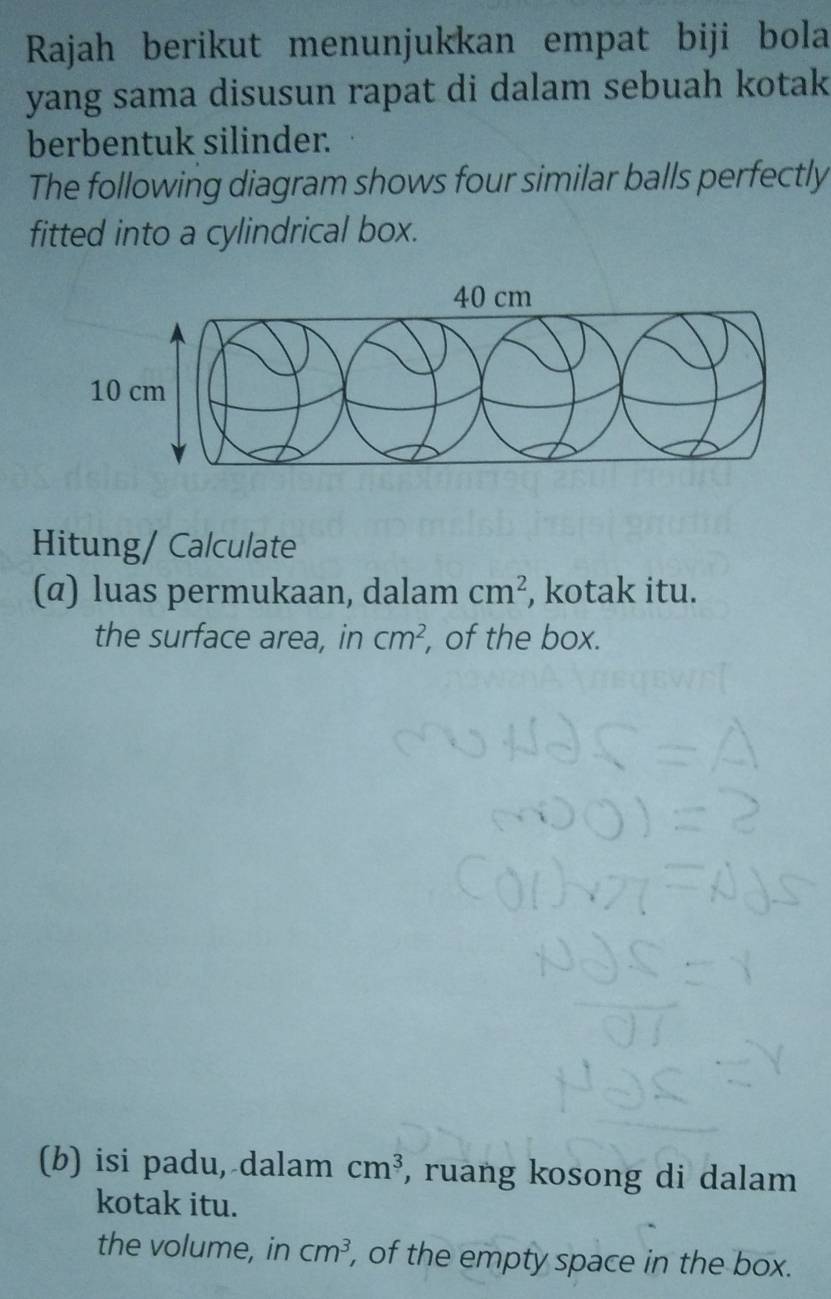 Rajah berikut menunjukkan empat biji bola
yang sama disusun rapat di dalam sebuah kotak
berbentuk silinder.
The following diagram shows four similar balls perfectly
fitted into a cylindrical box.
40 cm
10 cm
Hitung/ Calculate
(a) luas permukaan, dalam cm², kotak itu.
the surface area, in cm², of the box.
(b) isi padu, dalam cm³, ruang kosong di dalam
kotak itu.
the volume, in cm³, of the empty space in the box.